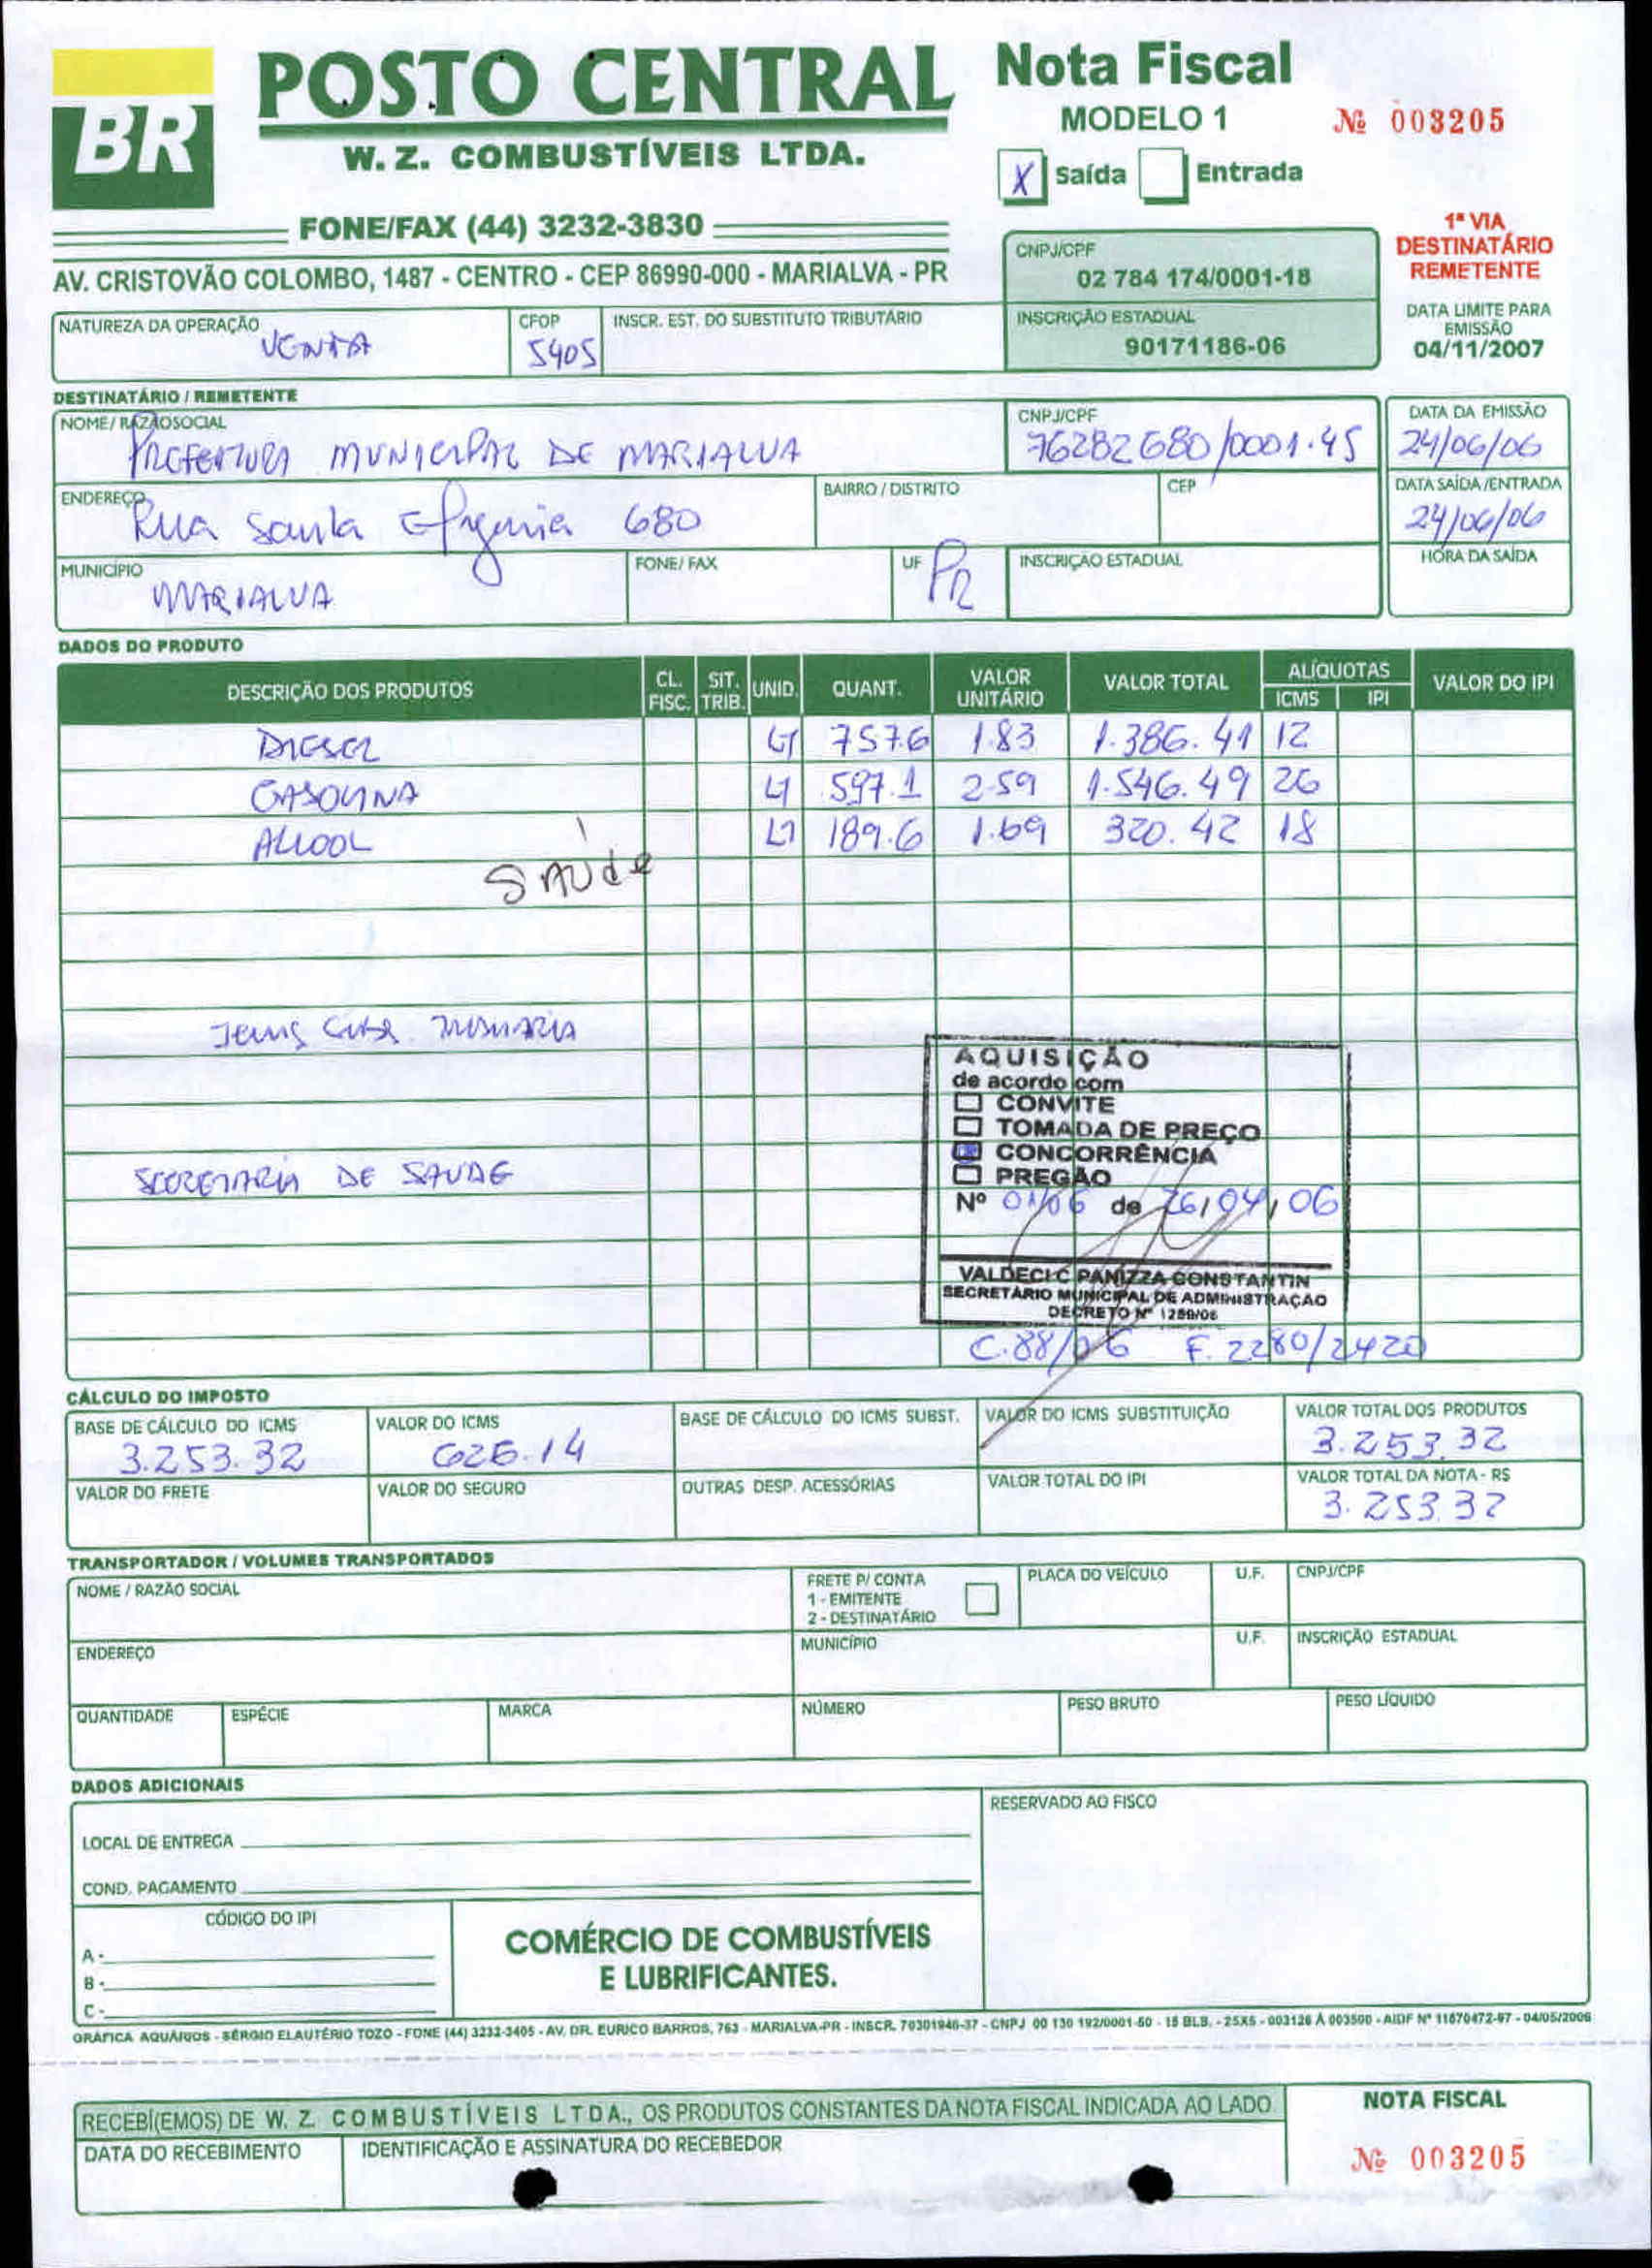 BR
POSTO CENTRAL
W. Z. COMBUSTÍVEIS LTDA.
FONE/FAX (44) 3232-3830
AV. CRISTOVÃO COLOMBO, 1487 - CENTRO - CEP 86990-000 - MARIALVA - PR
Nota Fiscal
MODELO 1
Nº 003205
X Saída Entrada
1ª VIA
DESTINATÁRIO
REMETENTE
CNPJ/CPF
02 784 174/0001-18
INSCRIÇÃO ESTADUAL
90171186-06
DATA LIMITE PARA
EMISSÃO
04/11/2007
NATUREZA DA OPERAÇÃO
VENDA
CFOP
5405
INSCR. EST. DO SUBSTITUTO TRIBUTÁRIO
DESTINATÁRIO / REMETENTE
NOME/ RAZÃO SOCIAL
PREFEITURA MUNICIPAL DE MARIALVA
CNPJ/CPF
76282680/0001.45
DATA DA EMISSÃO
24/06/06
ENDEREÇO
Rua Santa Efigenia 680
BAIRRO / DISTRITO
CEP
DATA SAÍDA/ENTRADA
24/06/06
MUNICÍPIO
MARIALVA
FONE/ FAX
UF
PR
INSCRIÇÃO ESTADUAL
HORA DA SAÍDA
DADOS DO PRODUTO
DESCRIÇÃO DOS PRODUTOS CL. FISC. SIT. TRIB. UNID. QUANT. VALOR UNITÁRIO VALOR TOTAL ALÍQUOTAS ICMS IPI VALOR DO IPI
DIESEL LT 757.6 1.83 1.386.41 12
GASOLINA LT 597.1 2.59 1.546.49 26
ALCOOL LT 189.6 1.69 320.42 18
SAÚde
SECRETARIA DE SAUDE
AQUISIÇÃO
de acordo com
CONVITE
TOMADA DE PREÇO
CONCORRÊNCIA
PREGÃO
Nº 01/06 de 26/04/06
VALDECI C PANIZZA CONSTANTIN
SECRETÁRIO MUNICIPAL DE ADMINISTRAÇÃO
DECRETO Nº
C.88/06 F. 2280/2420
CÁLCULO DO IMPOSTO
BASE DE CÁLCULO DO ICMS
3.253.32
VALOR DO ICMS
626.14
BASE DE CÁLCULO DO ICMS SUBST.
VALOR DO ICMS SUBSTITUIÇÃO
VALOR TOTAL DOS PRODUTOS
3.253.32
VALOR DO FRETE
VALOR DO SEGURO
OUTRAS DESP. ACESSÓRIAS
VALOR TOTAL DO IPI
VALOR TOTAL DA NOTA - R$
3.253.32
TRANSPORTADOR / VOLUMES TRANSPORTADOS
NOME / RAZÃO SOCIAL
FRETE P/ CONTA
1 - EMITENTE
2 - DESTINATÁRIO
PLACA DO VEÍCULO
U.F.
CNPJ/CPF
ENDEREÇO
MUNICÍPIO
U.F.
INSCRIÇÃO ESTADUAL
QUANTIDADE
ESPÉCIE
MARCA
NÚMERO
PESO BRUTO
PESO LÍQUIDO
DADOS ADICIONAIS
LOCAL DE ENTREGA
COND. PAGAMENTO
RESERVADO AO FISCO
CÓDIGO DO IPI
A -
B -
C -
COMÉRCIO DE COMBUSTÍVEIS
E LUBRIFICANTES.
GRÁFICA AQUÁRIOS - SÉRGIO ELAUTÉRIO TOZO - FONE (44) 3232-3405 - AV. DR. EURICO BARROS, 763 - MARIALVA-PR - INSCR. 70301946-37 - CNPJ 00 130 192/0001-50 - 15 BLS. - 25X5 - 003126 À 003500 - AIDF Nº 11870472-97 - 04/05/2006
RECEBI(EMOS) DE W. Z. COMBUSTÍVEIS LTDA., OS PRODUTOS CONSTANTES DA NOTA FISCAL INDICADA AO LADO
DATA DO RECEBIMENTO
IDENTIFICAÇÃO E ASSINATURA DO RECEBEDOR
NOTA FISCAL
Nº 003205